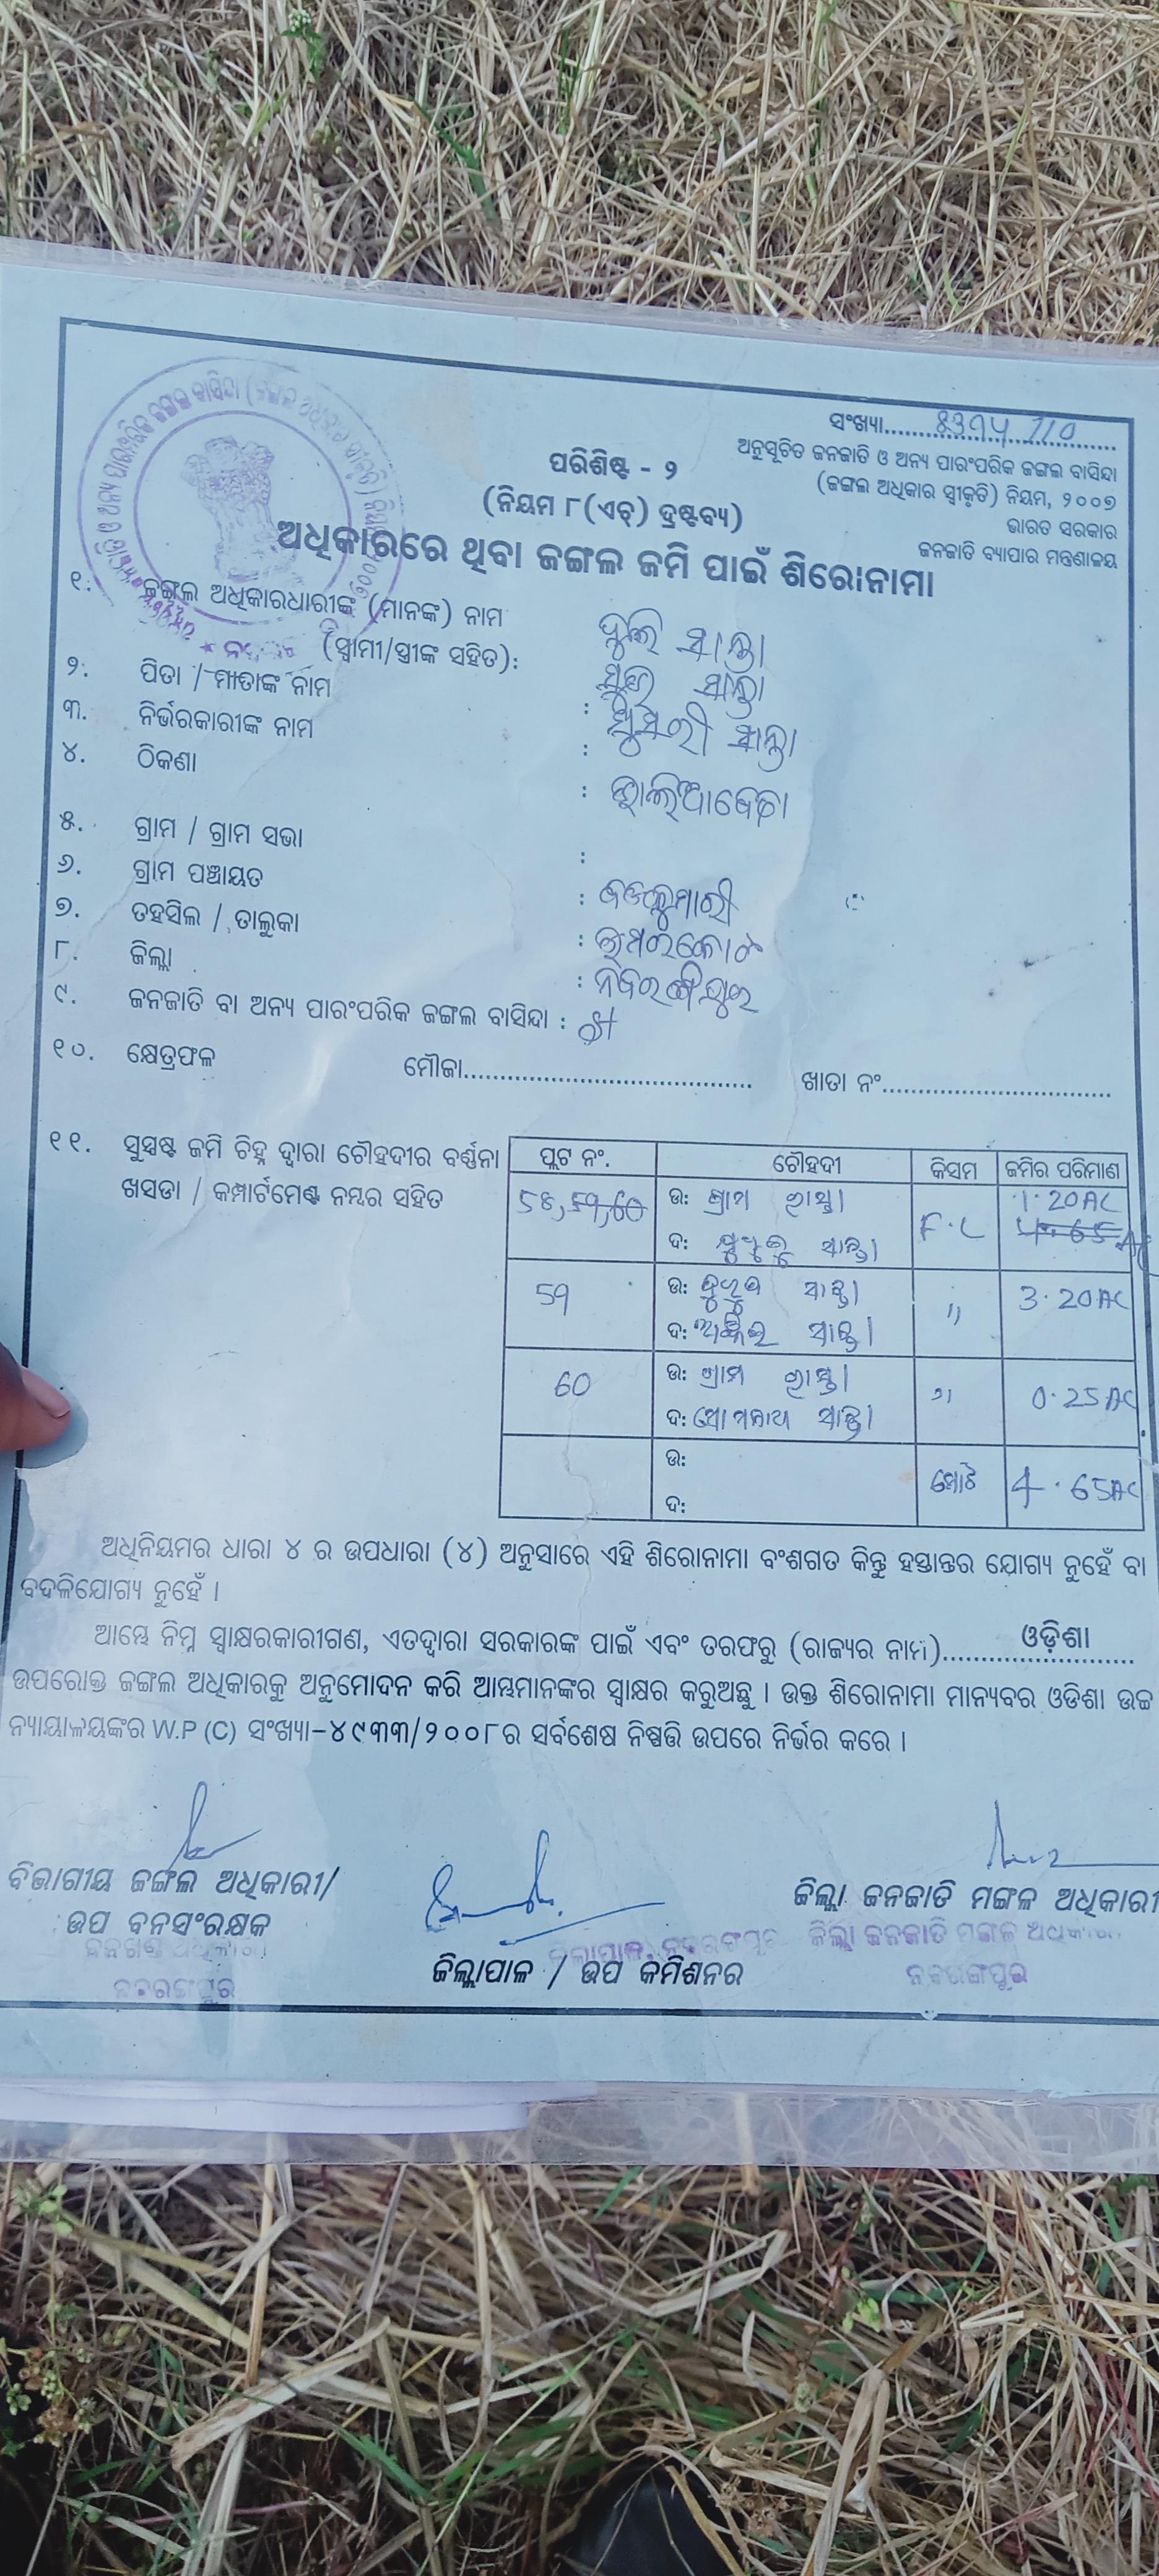 ସଂଖ୍ୟା....................
ଅନୁସୂଚିତ ଜନଜାତି ଓ ଅନ୍ୟ ପାରଂପରିକ ଜଙ୍ଗଲ ବାସିନ୍ଦା
(ଜଙ୍ଗଲ ଅଧିକାର ସ୍ୱୀକୃତି) ନିୟମ, ୨୦୦୭
ଭାରତ ସରକାର
ଜନଜାତି ବ୍ୟାପାର ମନ୍ତ୍ରଣାଳୟ
ପରିଶିଷ୍ଟ - ୨
(ନିୟମ ୮(ଏଚ୍) ଦ୍ରଷ୍ଟବ୍ୟ)
ଅଧିକାରରେ ଥିବା ଜଙ୍ଗଲ ଜମି ପାଇଁ ଶିରୋନାମା
୧. ଜଙ୍ଗଲ ଅଧିକାରଧାରୀଙ୍କ (ମାନଙ୍କ) ନାମ
(ସ୍ୱାମୀ/ସ୍ତ୍ରୀଙ୍କ ସହିତ):
୨. ପିତା / ମାତାଙ୍କ ନାମ :
୩. ନିର୍ଭରକାରୀଙ୍କ ନାମ :
୪. ଠିକଣା :
୫. ଗ୍ରାମ / ଗ୍ରାମ ସଭା :
୬. ଗ୍ରାମ ପଞ୍ଚାୟତ :
୭. ତହସିଲ / ତାଲୁକା : ଉମରକୋଟ
୮. ଜିଲ୍ଲା : ନବରଙ୍ଗପୁର
୯. ଜନଜାତି ବା ଅନ୍ୟ ପାରଂପରିକ ଜଙ୍ଗଲ ବାସିନ୍ଦା :
୧୦. କ୍ଷେତ୍ରଫଳ ମୌଜା.................... ଖାତା ନଂ....................
୧୧. ସୁସ୍ପଷ୍ଟ ଜମି ଚିହ୍ନ ଦ୍ୱାରା ଚୌହଦୀର ବର୍ଣ୍ଣନା
ଖସଡା / କମ୍ପାର୍ଟମେଣ୍ଟ ନମ୍ବର ସହିତ
ପ୍ଲଟ ନଂ. ଚୌହଦୀ କିସମ ଜମିର ପରିମାଣ
58, 59, 60 ଉ: ଗ୍ରାମ ରାସ୍ତା F.C 1.20AC
ଦ: ସାନ୍ତା 4.65 AC
59 ଉ: ସାନ୍ତା " 3.20AC
ଦ: ସାନ୍ତା
60 ଉ: ଗ୍ରାମ ରାସ୍ତା " 0.25AC
ଦ: ସୋମନାଥ ସାନ୍ତା
ଉ: ମୋଟ 4.65AC
ଦ:
ଅଧିନିୟମର ଧାରା ୪ ର ଉପଧାରା (୪) ଅନୁସାରେ ଏହି ଶିରୋନାମା ବଂଶଗତ କିନ୍ତୁ ହସ୍ତାନ୍ତର ଯୋଗ୍ୟ ନୁହେଁ ବା
ବଦଳିଯୋଗ୍ୟ ନୁହେଁ ।
ଆମ୍ଭେ ନିମ୍ନ ସ୍ୱାକ୍ଷରକାରୀଗଣ, ଏତଦ୍ୱାରା ସରକାରଙ୍କ ପାଇଁ ଏବଂ ତରଫରୁ (ରାଜ୍ୟର ନାମ)....................ଓଡ଼ିଶା
ଉପରୋକ୍ତ ଜଙ୍ଗଲ ଅଧିକାରକୁ ଅନୁମୋଦନ କରି ଆମ୍ଭମାନଙ୍କର ସ୍ୱାକ୍ଷର କରୁଅଛୁ । ଉକ୍ତ ଶିରୋନାମା ମାନ୍ୟବର ଓଡିଶା ଉଚ୍ଚ
ନ୍ୟାୟାଳୟଙ୍କର W.P (C) ସଂଖ୍ୟା-୪୯୩୩/୨୦୦୮ର ସର୍ବଶେଷ ନିଷ୍ପତ୍ତି ଉପରେ ନିର୍ଭର କରେ ।
ବିଭାଗୀୟ ଜଙ୍ଗଲ ଅଧିକାରୀ/
ଉପ ବନସଂରକ୍ଷକ
ନବରଙ୍ଗପୁର
ଜିଲ୍ଲାପାଳ, ନବରଙ୍ଗପୁର
ଜିଲ୍ଲାପାଳ / ଉପ କମିଶନର
ଜିଲ୍ଲା ଜନଜାତି ମଙ୍ଗଳ ଅଧିକାରୀ
ଜିଲ୍ଲା ଜନଜାତି ମଙ୍ଗଳ ଅଧିକାରୀ
ନବରଙ୍ଗପୁର